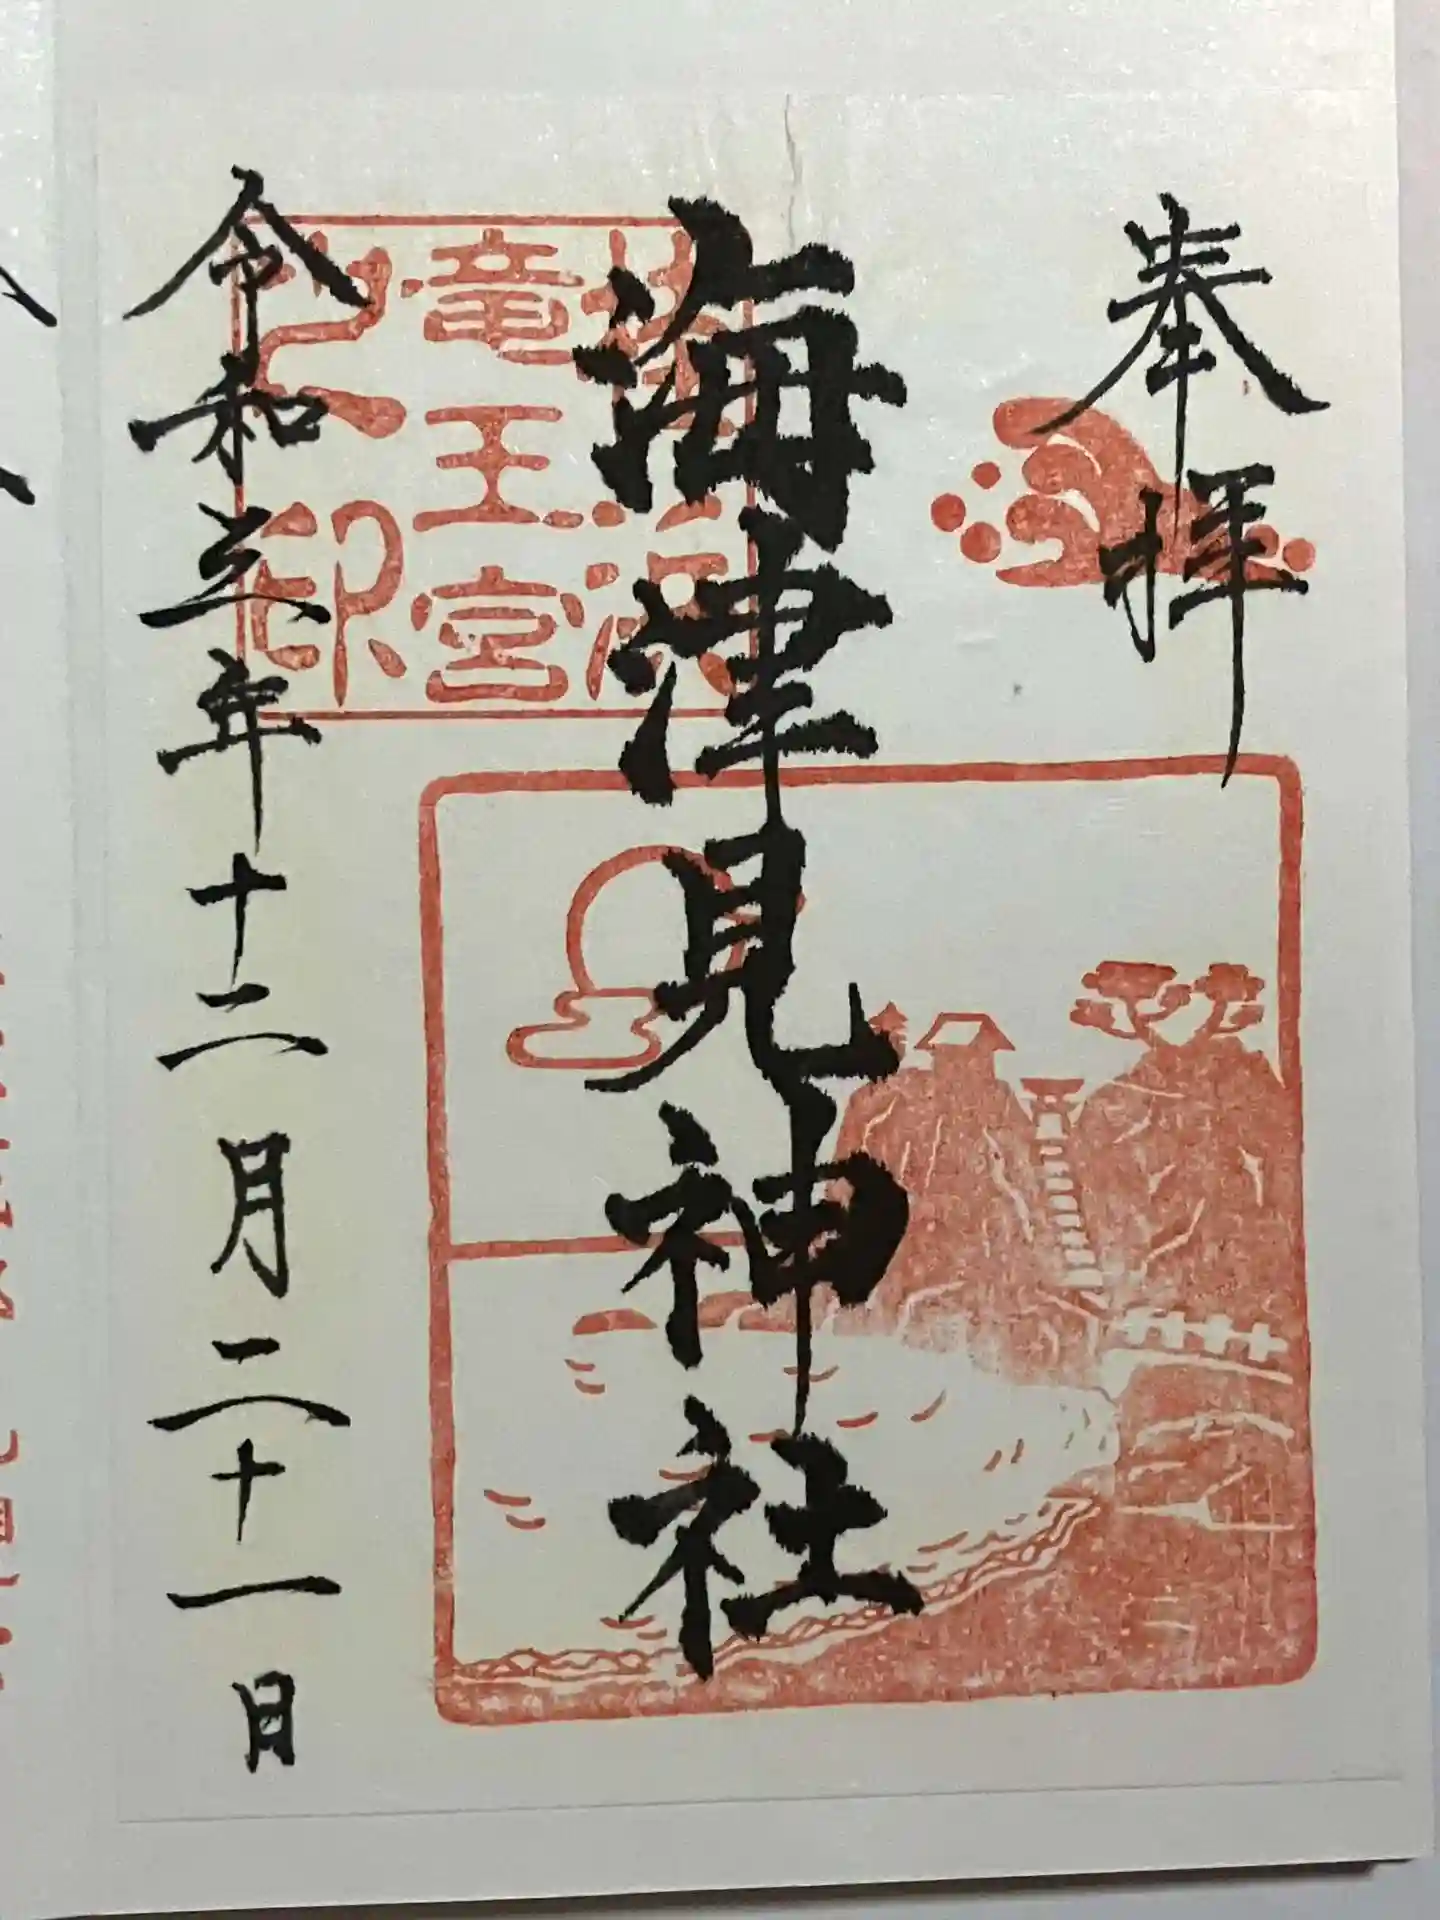 奉拝
海津見神社
令和五年十二月二十一日
桂浜
竜王宮
之印